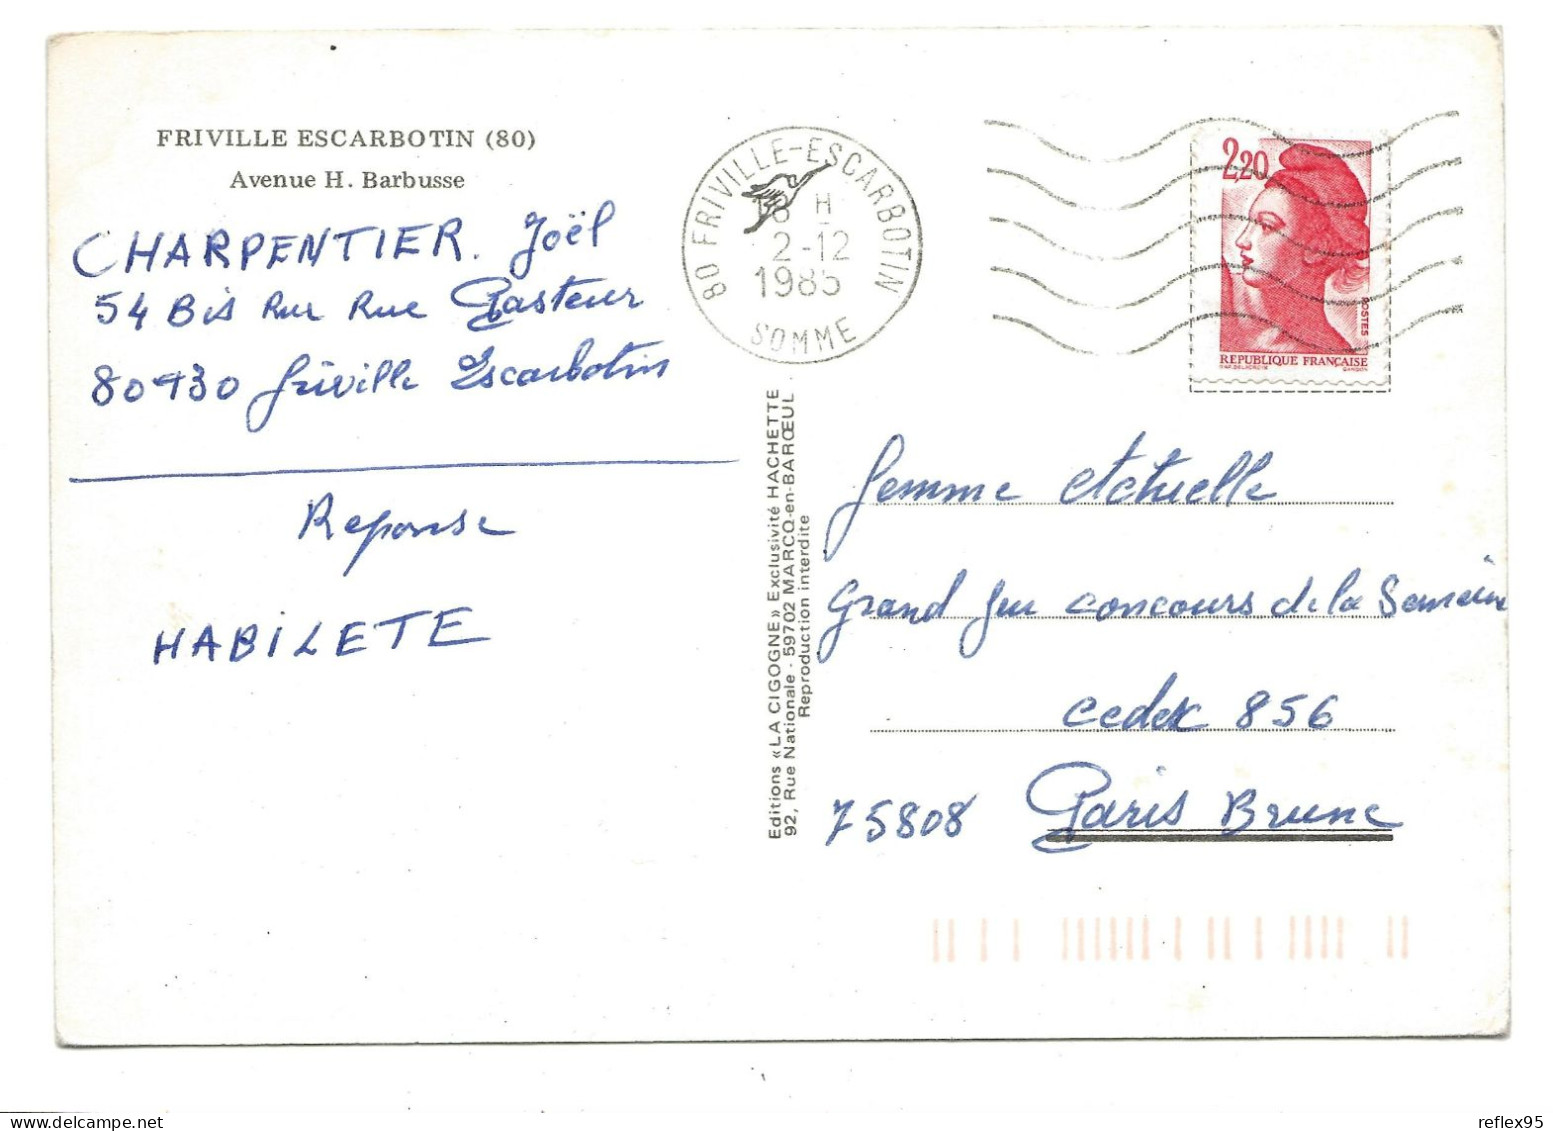 FRIVILLE ESCARBOTIN (80)
Avenue H. Barbusse
CHARPENTIER. Joël
54 Bis Rue Rue Pasteur
80430 Friville Escarbotin
Reponse
HABILETE
80 FRIVILLE-ESCARBOTIN
18 H
2-12
1985
SOMME
2,20
POSTES
REPUBLIQUE FRANÇAISE
D'AP. DELACROIX GANDON
Editions «LA CIGOGNE» Exclusivité HACHETTE
92, Rue Nationale - 59702 MARCQ-en-BARŒUL
Reproduction interdite
femme actuelle
Grand jeu concours de la Semaine
cedex 856
75808 Paris Brune
reflex95